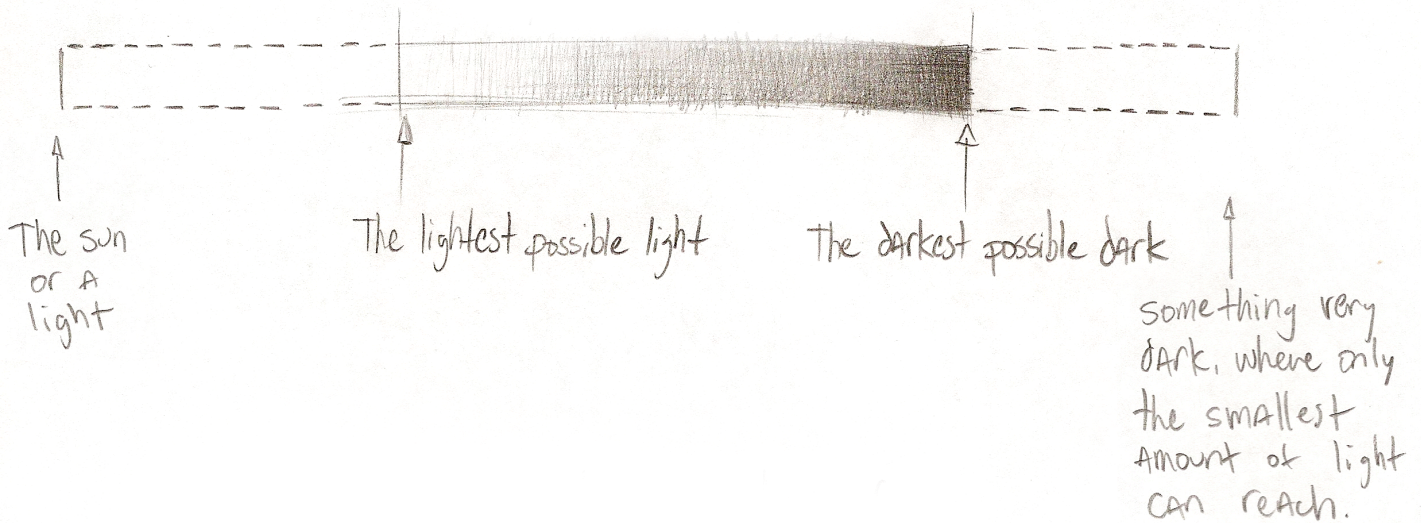 The sun
or A
light
The lightest possible light
The darkest possible dark
something very
dark, where only
the smallest
Amount of light
can reach.